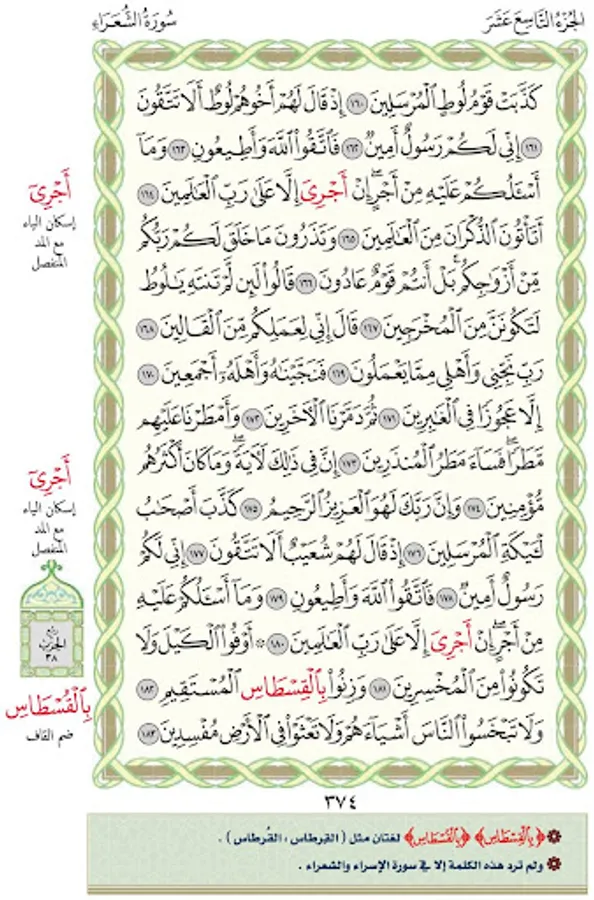 الجُزْءُ التَّاسِعَ عَشَرَ
سُورَةُ الشُّعَرَاءِ
كَذَّبَتْ قَوْمُ لُوطٍ ٱلْمُرْسَلِينَ ١٦٠ إِذْ قَالَ لَهُمْ أَخُوهُمْ لُوطٌ أَلَا تَتَّقُونَ
١٦١ إِنِّى لَكُمْ رَسُولٌ أَمِينٌ ١٦٢ فَٱتَّقُوا۟ ٱللَّهَ وَأَطِيعُونِ ١٦٣ وَمَآ
أَسْـَٔلُكُمْ عَلَيْهِ مِنْ أَجْرٍ ۖ إِنْ أَجْرِىَ إِلَّا عَلَىٰ رَبِّ ٱلْعَـٰلَمِينَ ١٦٤
أَتَأْتُونَ ٱلذُّكْرَانَ مِنَ ٱلْعَـٰلَمِينَ ١٦٥ وَتَذَرُونَ مَا خَلَقَ لَكُمْ رَبُّكُم
مِّنْ أَزْوَٰجِكُم ۚ بَلْ أَنتُمْ قَوْمٌ عَادُونَ ١٦٦ قَالُوا۟ لَئِن لَّمْ تَنتَهِ يَـٰلُوطُ
لَتَكُونَنَّ مِنَ ٱلْمُخْرَجِينَ ١٦٧ قَالَ إِنِّى لِعَمَلِكُم مِّنَ ٱلْقَالِينَ ١٦٨
رَبِّ نَجِّنِى وَأَهْلِى مِمَّا يَعْمَلُونَ ١٦٩ فَنَجَّيْنَـٰهُ وَأَهْلَهُۥٓ أَجْمَعِينَ ١٧٠
إِلَّا عَجُوزًا فِى ٱلْغَـٰبِرِينَ ١٧١ ثُمَّ دَمَّرْنَا ٱلْـَٔاخَرِينَ ١٧٢ وَأَمْطَرْنَا عَلَيْهِم
مَّطَرًا ۖ فَسَآءَ مَطَرُ ٱلْمُنذَرِينَ ١٧٣ إِنَّ فِى ذَٰلِكَ لَـَٔايَةً ۖ وَمَا كَانَ أَكْثَرُهُم
مُّؤْمِنِينَ ١٧٤ وَإِنَّ رَبَّكَ لَهُوَ ٱلْعَزِيزُ ٱلرَّحِيمُ ١٧٥ كَذَّبَ أَصْحَـٰبُ
لْـَٔيْكَةِ ٱلْمُرْسَلِينَ ١٧٦ إِذْ قَالَ لَهُمْ شُعَيْبٌ أَلَا تَتَّقُونَ ١٧٧ إِنِّى لَكُمْ
رَسُولٌ أَمِينٌ ١٧٨ فَٱتَّقُوا۟ ٱللَّهَ وَأَطِيعُونِ ١٧٩ وَمَآ أَسْـَٔلُكُمْ عَلَيْهِ
مِنْ أَجْرٍ ۖ إِنْ أَجْرِىَ إِلَّا عَلَىٰ رَبِّ ٱلْعَـٰلَمِينَ ١٨٠ ۞ أَوْفُوا۟ ٱلْكَيْلَ وَلَا
تَكُونُوا۟ مِنَ ٱلْمُخْسِرِينَ ١٨١ وَزِنُوا۟ بِٱلْقِسْطَاسِ ٱلْمُسْتَقِيمِ ١٨٢
وَلَا تَبْخَسُوا۟ ٱلنَّاسَ أَشْيَآءَهُمْ وَلَا تَعْثَوْا۟ فِى ٱلْأَرْضِ مُفْسِدِينَ ١٨٣
أَجْرِىٓ
إسكان الياء
مع المد
المنفصل
أَجْرِىٓ
إسكان الياء
مع المد
المنفصل
ربع
الحزب
٣٨
بِٱلْقُسْطَاسِ
ضم القاف
٣٧٤
﴿بِٱلْقِسْطَاسِ﴾ ﴿بِٱلْقُسْطَاسِ﴾ لغتان مثل ( القِرطاس ، القُرطاس ) .
ولم ترد هذه الكلمة إلا في سورة الإسراء والشعراء .